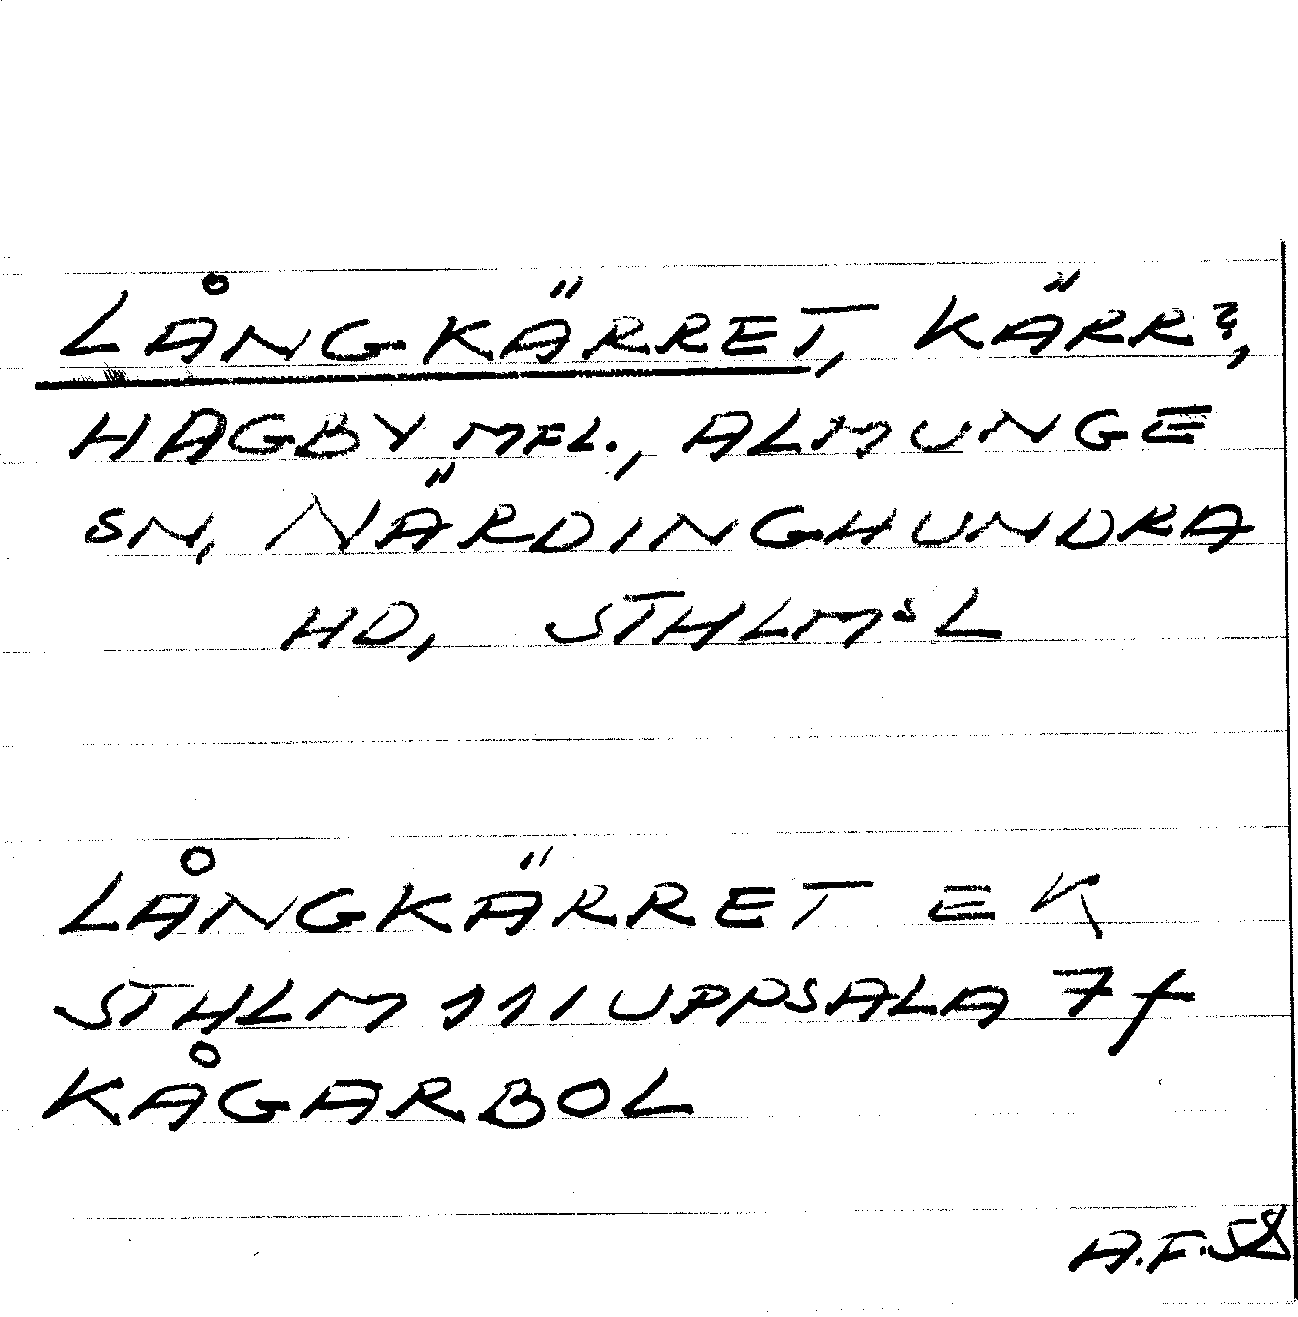 LÅNGKÄRRET, KÄRR?,
HAGBY MFL., ALMUNGE
SN, NÄRDINGHUNDRA
HD, STHLMS L
LÅNGKÄRRET EK
STHLM 111 UPPSALA 7f
KÅGARBOL
A.F. 58